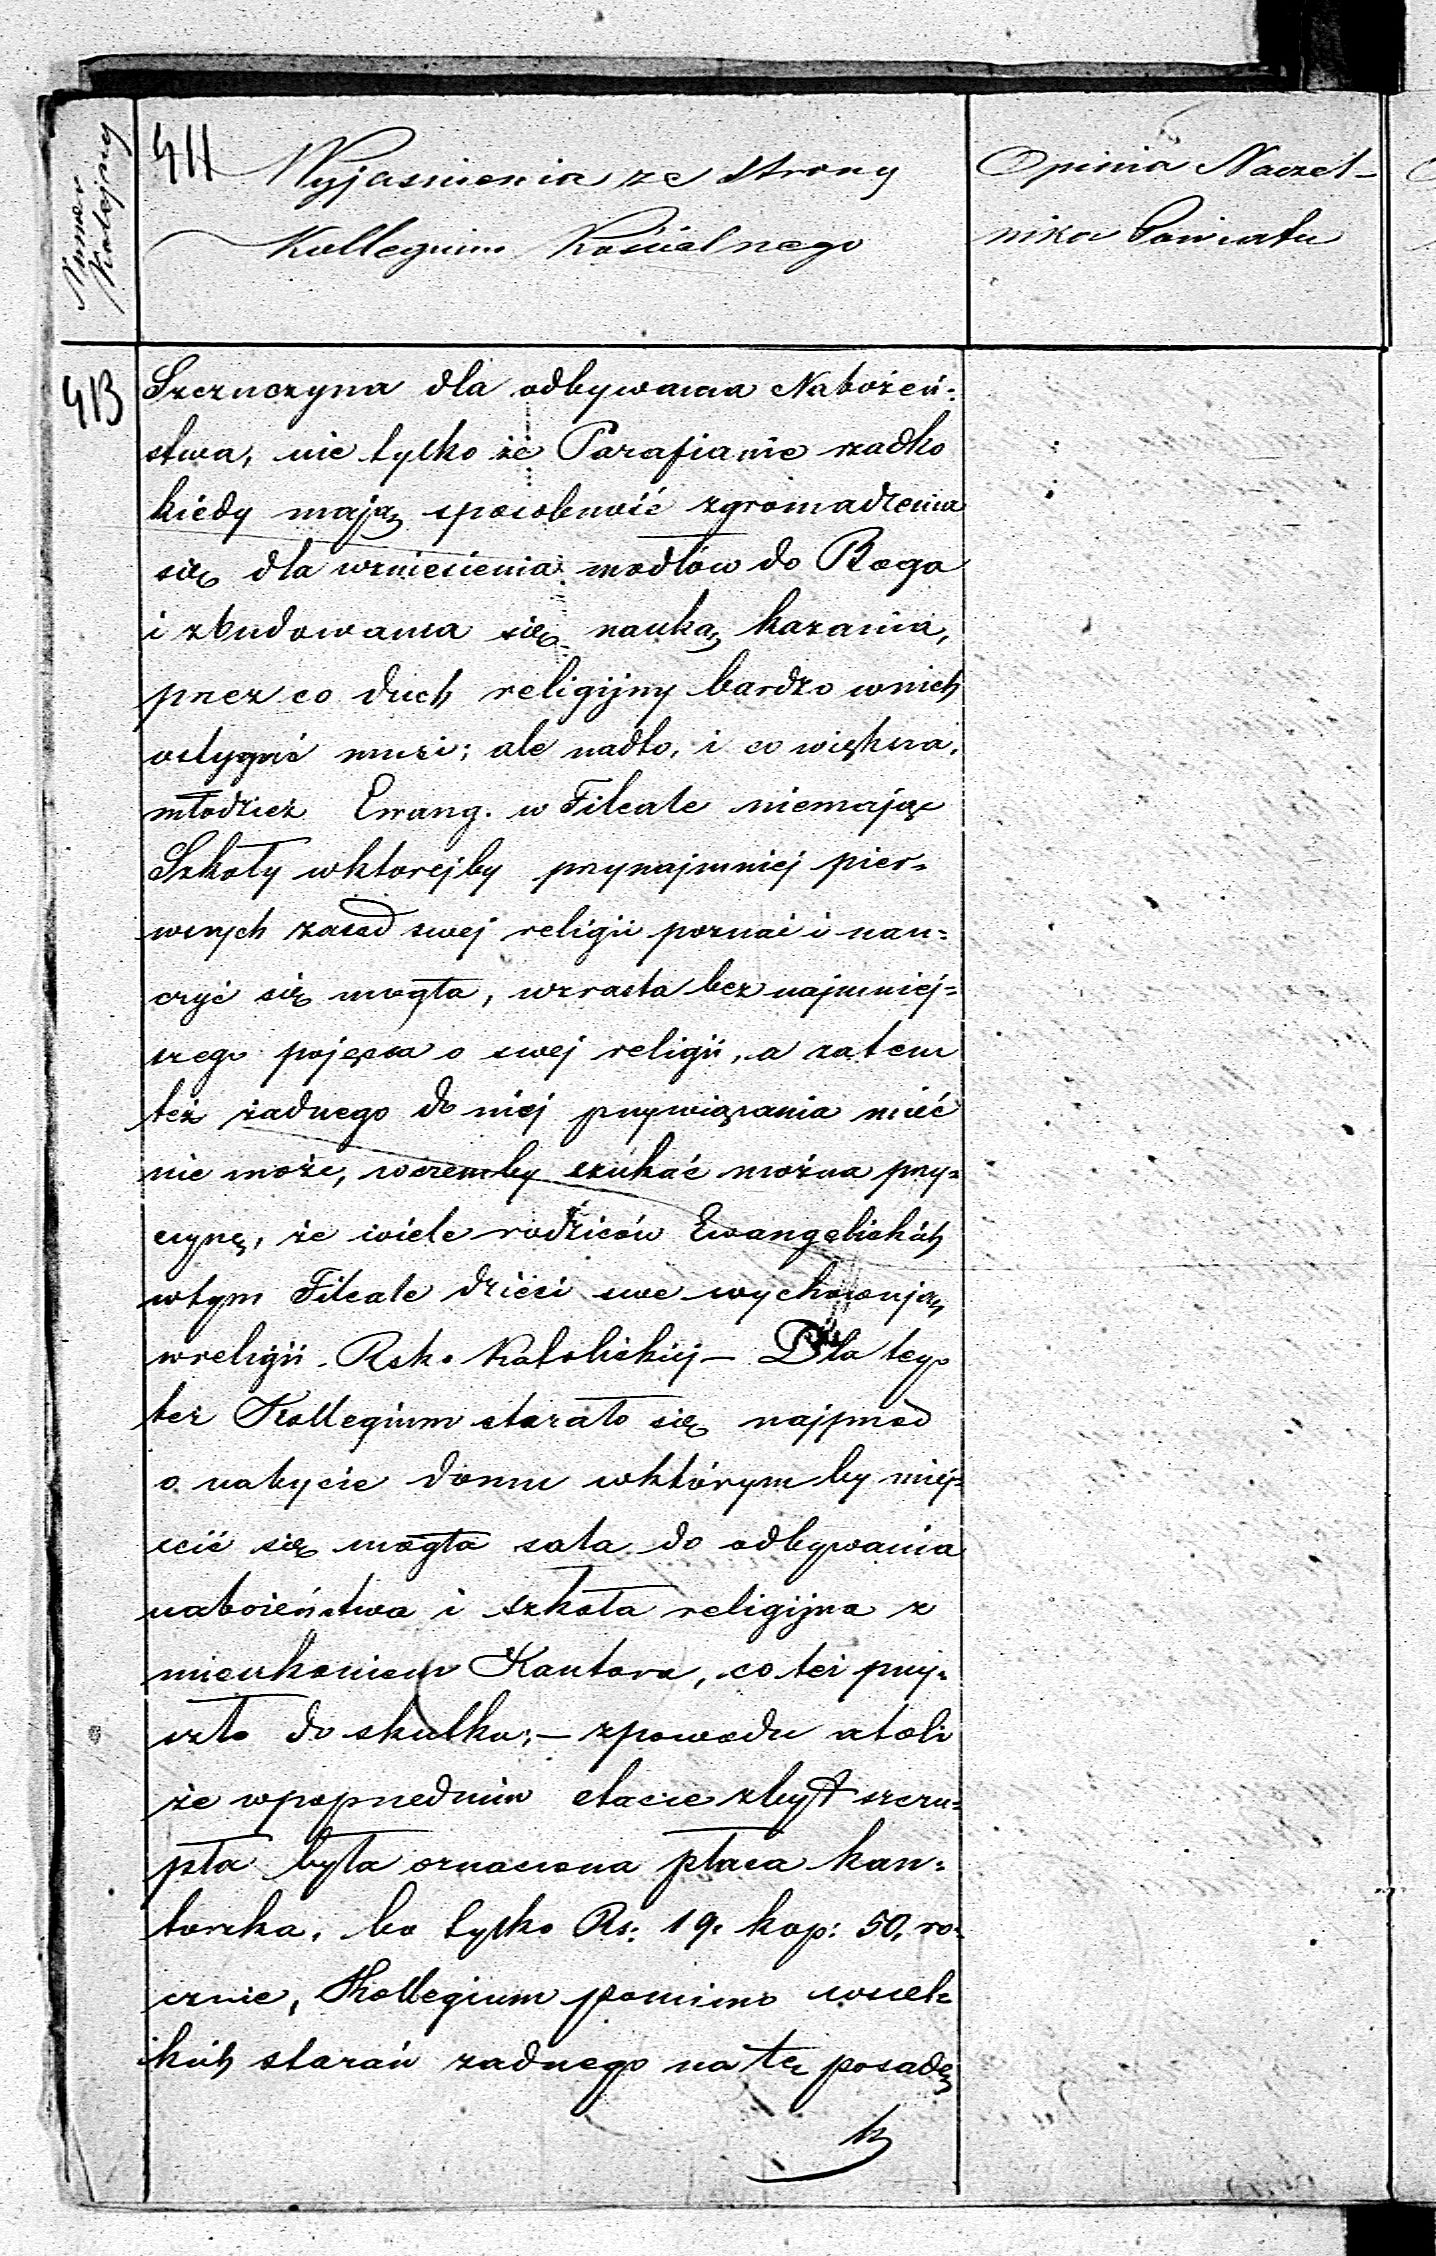 Numer Kolejny
411
Wyjasnienia ze strony
Kollegium Kościelnego
Opinia Naczel-
nika Powiatu
413
Szczuczyna dla odbywania Nabożeń-
stwa, nie tylko że Parafianie rzadko
kiedy mają sposobność zgromadzenia
się dla wzniesienia modłów do Boga
i zbudowania się nauką kazania,
przez co duch religijny bardzo wnich
ostygnć musi; ale nadto, i co większa,
młodzież Ewang. w Fileale niemając
Szkoły wktorejby przynajmniej pier-
wszych zasad swej religii poznać i nau-
czyć się mogła, wzrasta bez najmniej-
szego pojęcia o swej religii, a zatem
też żadnego do niej przywiązania mieć
nie może, wczemby szukać można przy-
czynę, że wiele rodziców Ewangelickich
wtym Fileale dzieci swe wychowują
wreligii Rsk. Katolickiej — Dla tego
też Kollegium starało się najprzod
o nabycie domu wktórym by mieś-
cić się mogła sala do odbywania
nabożeństwa i szkoła religijna z
mieszkaniem Kantora, co też przy-
szło do skutku; — zpowodu atoli
że wpoprzednim etacie zbyt szczu-
pła była oznaczona płaca kan-
torska, bo tylko Rs: 19. kop: 50, ro-
cznie, Kollegium pomimo wszel-
kich starań żadnego na tę posadę